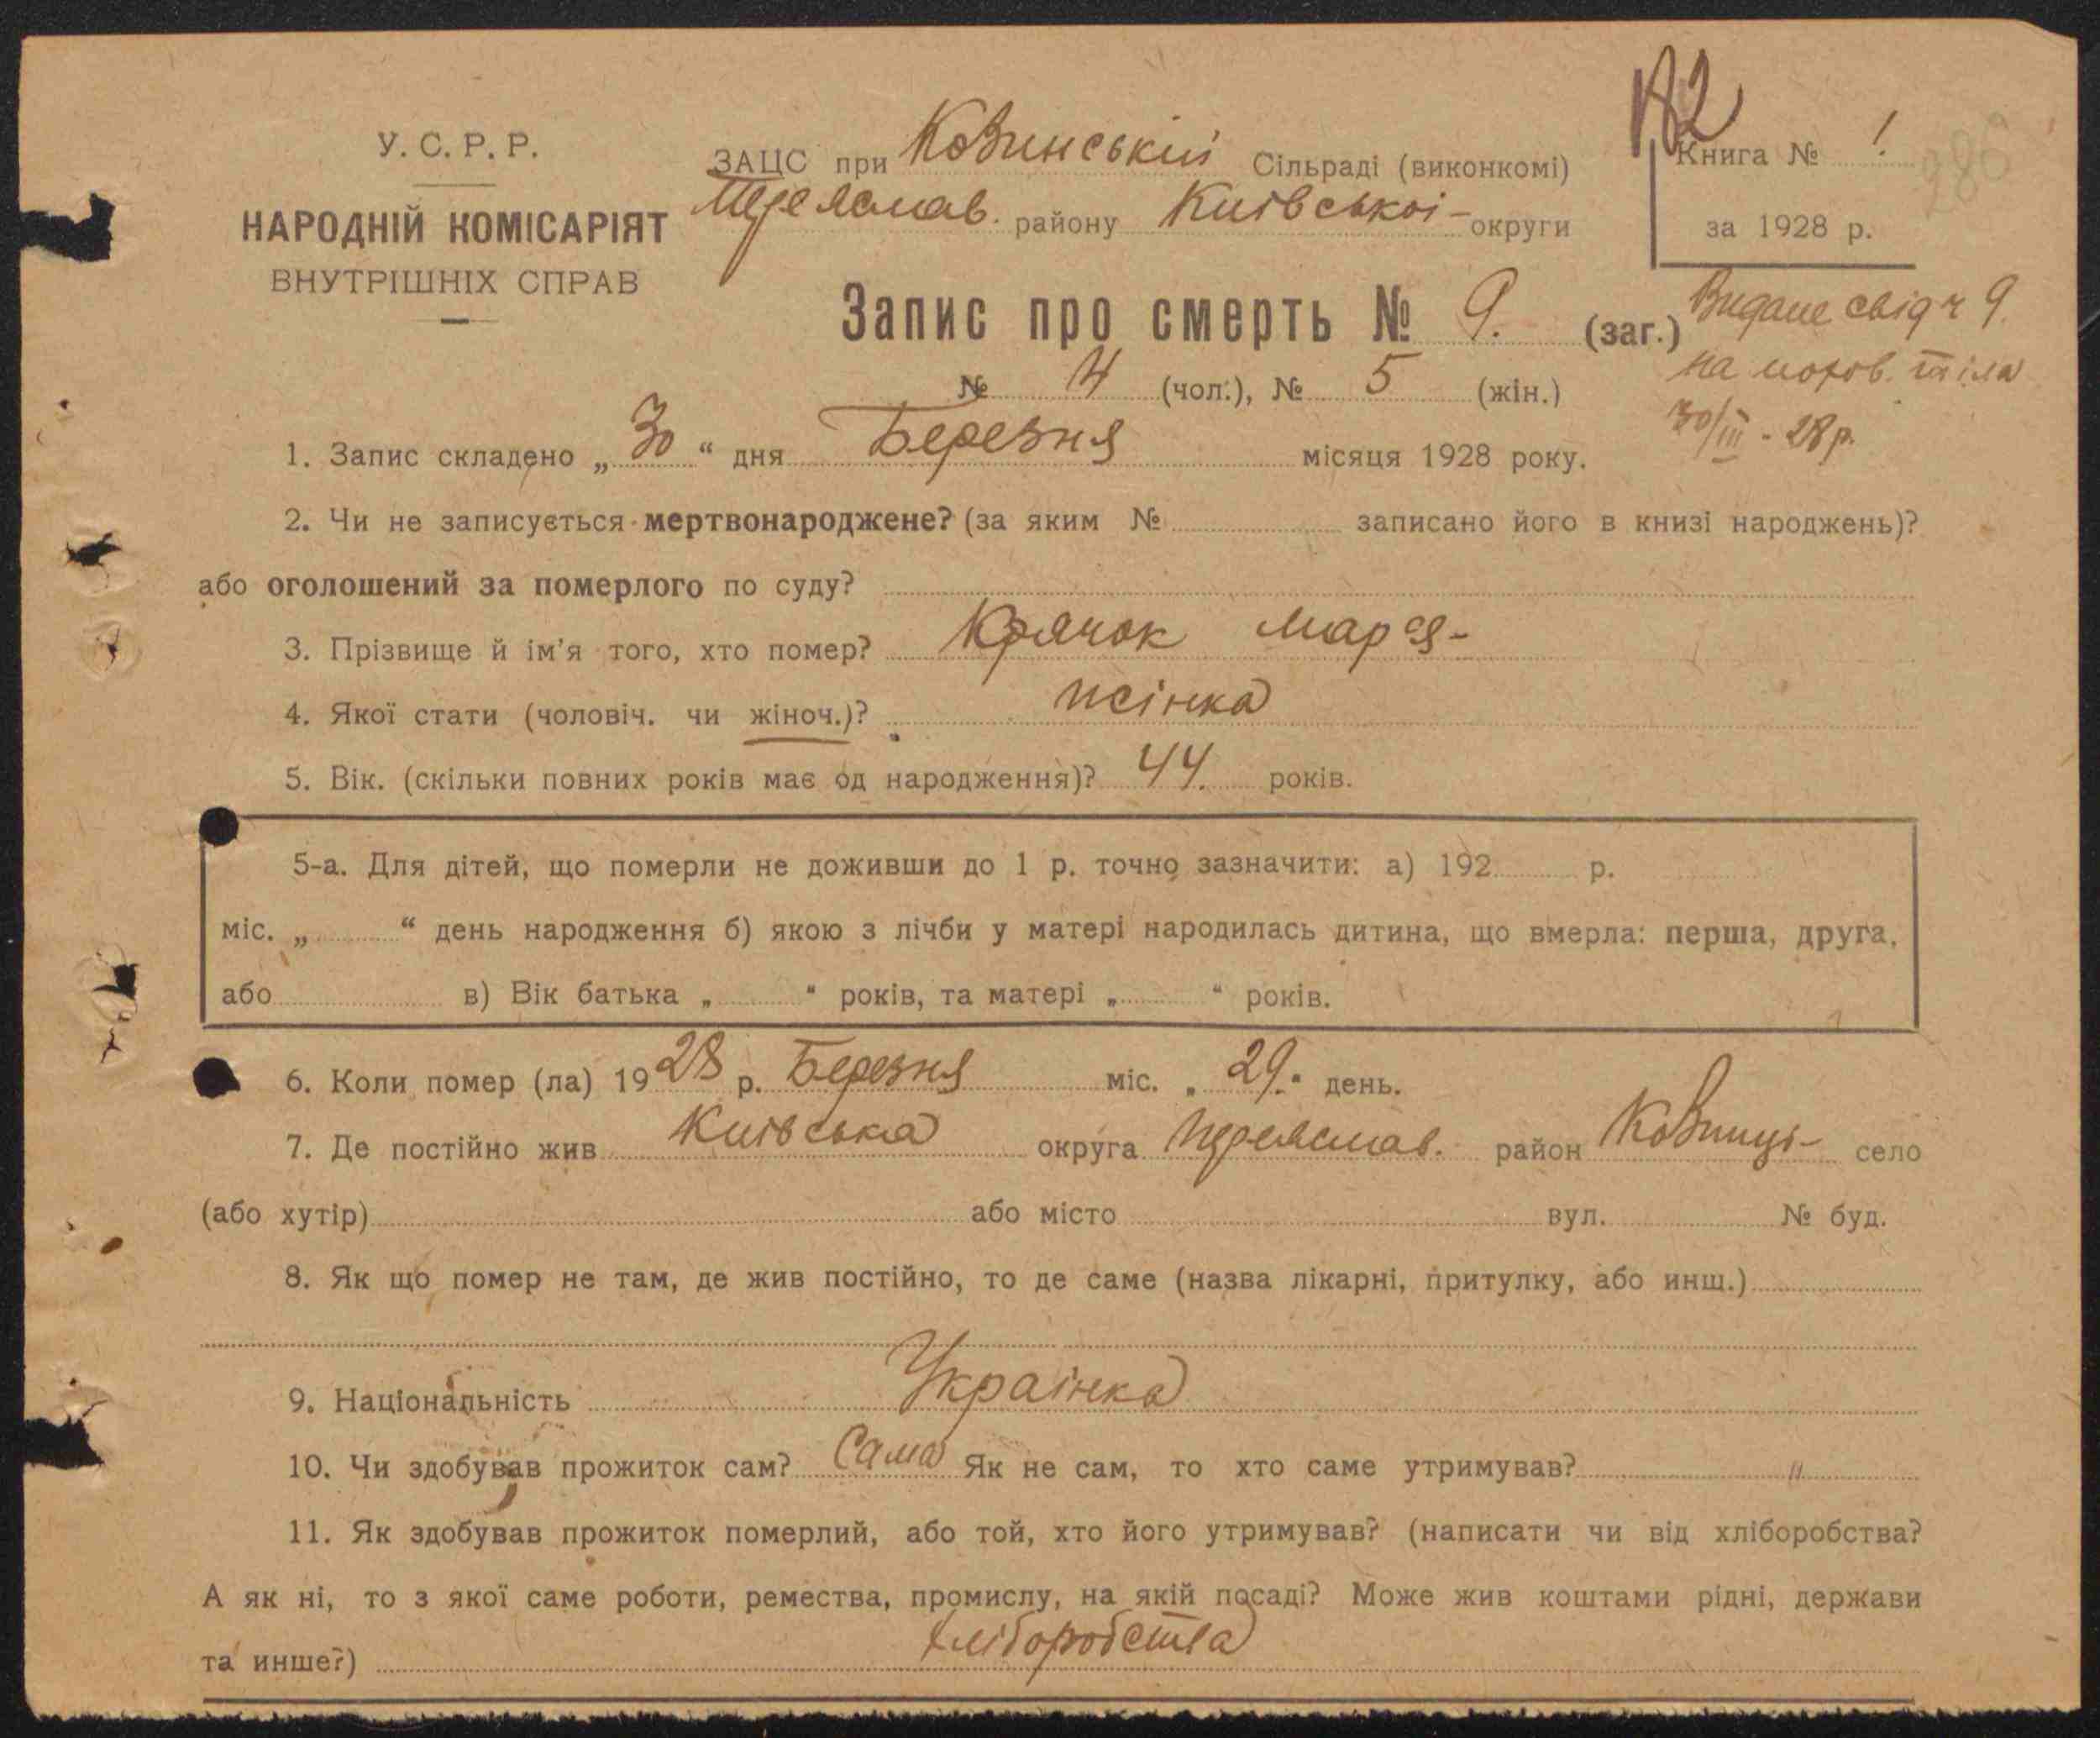 182
У. С. Р. Р.
ЗАЦС при Ковинській Сільраді (виконкомі)
Книга № 1.
286
НАРОДНІЙ КОМІСАРІЯТ
Переяслав. району Київської округи
за 1928 р.
ВНУТРІШНІХ СПРАВ
Запис про смерть № 9. (заг.)
Видане свідч 9.
на похов. тіла
30/III - 28 р.
№ 4 (чол.), № 5 (жін.)
1. Запис складено „ 30 “ дня Березня місяця 1928 року.
2. Чи не записується мертвонароджене? (за яким № записано його в книзі народжень)?
або оголошений за померлого по суду?
3. Прізвище й ім'я того, хто помер? Крячок Марія
4. Якої стати (чоловіч. чи жіноч.)? жінка
5. Вік. (скільки повних років має од народження)? 44. років.
5-а. Для дітей, що померли не доживши до 1 р. точно зазначити: а) 192 р.
міс. „ “ день народження б) якою з лічби у матері народилась дитина, що вмерла: перша, друга,
або в) Вік батька „ “ років, та матері „ “ років.
6. Коли помер (ла) 1928 р. Березня міс. „ 29. “ день.
7. Де постійно жив Київська округа Переяслав. район Ковинці село
(або хутір) або місто вул. № буд.
8. Як що помер не там, де жив постійно, то де саме (назва лікарні, притулку, або инш.)
9. Національність Українка
10. Чи здобував прожиток сам? Сама Як не сам, то хто саме утримував? "
11. Як здобував прожиток померлий, або той, хто його утримував? (написати чи від хліборобства?
А як ні, то з якої саме роботи, ремества, промислу, на якій посаді? Може жив коштами рідні, держави
та инше?) хліборобства